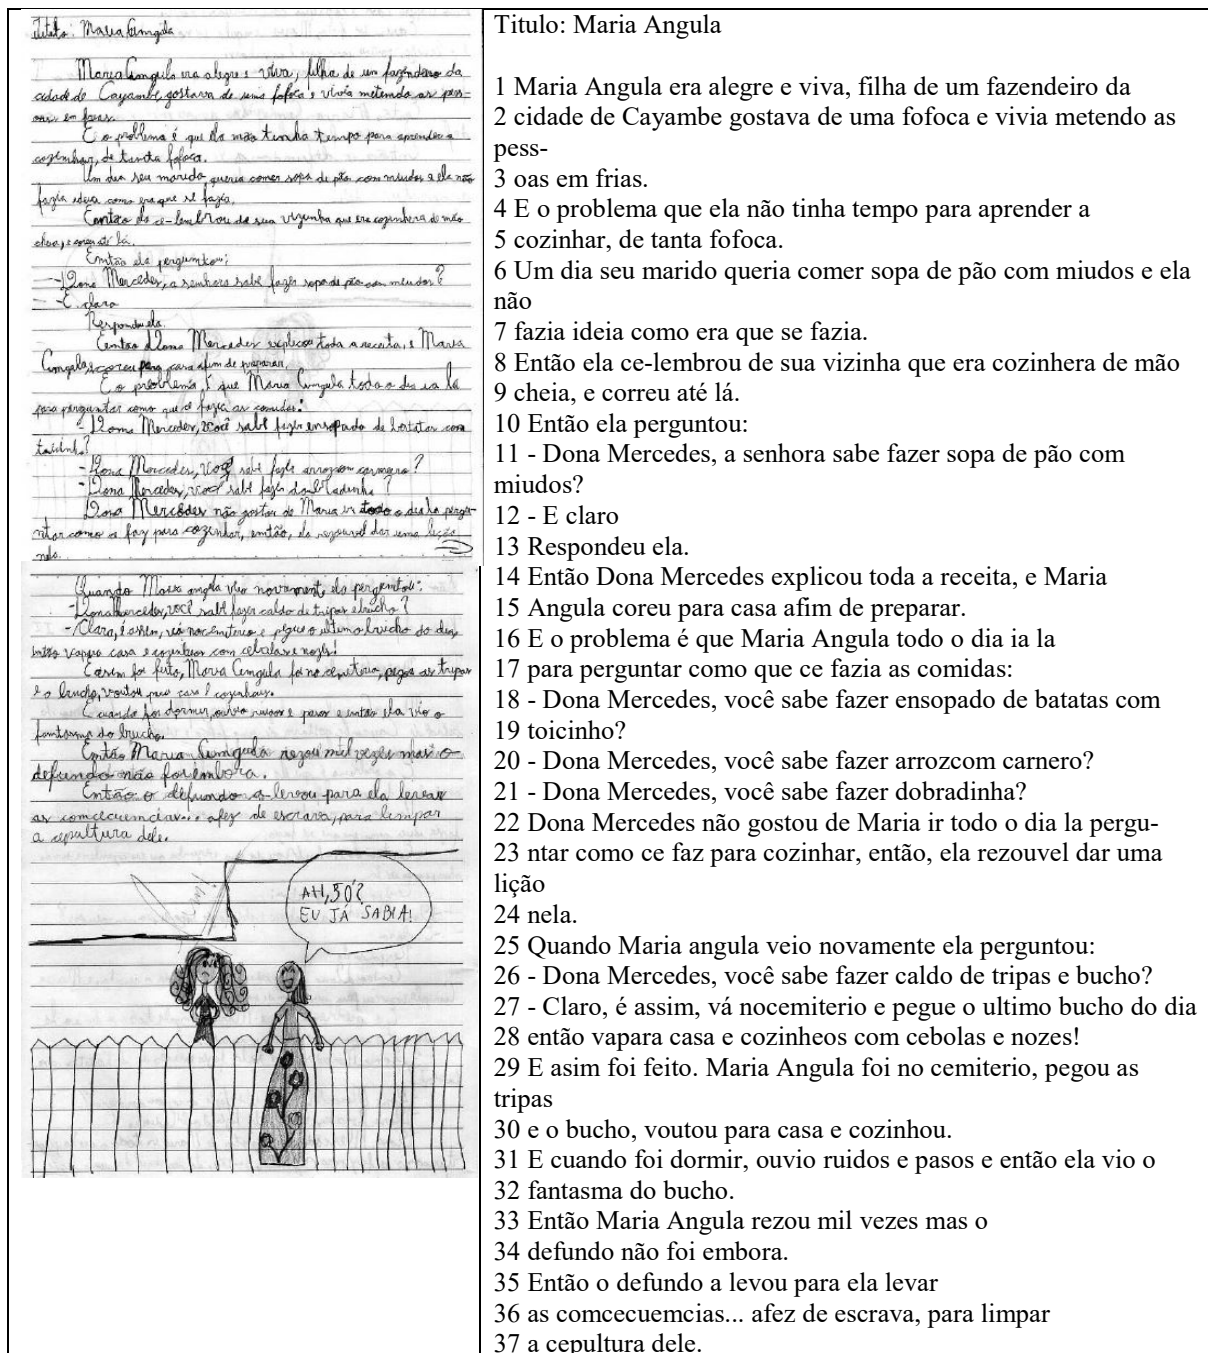 Titulo: Maria Angula
Maria Angula era alegre e viva, filha de um fazendeiro da
cidade de Cayambe, gostava de uma fofoca e vivia metendo as pess-
oas em frias.
E o problema é que ela não tinha tempo para aprender a
cozinhar, de tanta fofoca.
Um dia seu marido queria comer sopa de pão com miudos e ela não
fazia ideia como era que se fazia.
Então ela ce-lembrou de sua vizinha que era cozinhera de mão
cheia, e coreu até lá.
Então ela perguntou:
- Dona Mercedes, a senhora sabe fazer sopa de pão com miudos?
- E claro
Respondeu ela.
Então Dona Mercedes explicou toda a receita, e Maria
Angula coreu para casa afim de preparar.
E o problema é que Maria Angula todo o dia ia la
para perguntar como que ce fazia as comidas:
- Dona Mercedes, você sabe fazer ensopado de batatas com
toicinho?
- Dona Mercedes, você sabe fazer arrozcom carnero?
- Dona Mercedes, você sabe fazer dobradinha?
Dona Mercedes não gostou de Maria ir todo o dia la pergu-
ntar como ce faz para cozinhar, então, ela rezouvel dar uma lição
nela.
Quando Maria angula veio novamente ela perguntou:
- Dona Mercedes, você sabe fazer caldo de tripas e bucho?
- Claro, é assim, vá nocemiterio e pegue o ultimo bucho do dia
então vapara casa e cozinheos com cebolas e nozes!
E asim foi feito, Maria Angula foi no cemiterio, pegou as tripas
e o bucho, voutou para casa e cozinhou.
E cuando foi dormir, ouvio ruidos e pasos e então ela vio o
fantasma do bucho.
Então Maria Angula rezou mil vezes mas o
defundo não foi embora.
Então o defundo a levou para ela levar
as comcecuemcias... afez de escrava, para limpar
a cepultura dele.
AH, SO?
EU JÁ SABIA!
Titulo: Maria Angula
1 Maria Angula era alegre e viva, filha de um fazendeiro da
2 cidade de Cayambe gostava de uma fofoca e vivia metendo as
pess-
3 oas em frias.
4 E o problema que ela não tinha tempo para aprender a
5 cozinhar, de tanta fofoca.
6 Um dia seu marido queria comer sopa de pão com miudos e ela
não
7 fazia ideia como era que se fazia.
8 Então ela ce-lembrou de sua vizinha que era cozinhera de mão
9 cheia, e correu até lá.
10 Então ela perguntou:
11 - Dona Mercedes, a senhora sabe fazer sopa de pão com
miudos?
12 - E claro
13 Respondeu ela.
14 Então Dona Mercedes explicou toda a receita, e Maria
15 Angula coreu para casa afim de preparar.
16 E o problema é que Maria Angula todo o dia ia la
17 para perguntar como que ce fazia as comidas:
18 - Dona Mercedes, você sabe fazer ensopado de batatas com
19 toicinho?
20 - Dona Mercedes, você sabe fazer arrozcom carnero?
21 - Dona Mercedes, você sabe fazer dobradinha?
22 Dona Mercedes não gostou de Maria ir todo o dia la pergu-
23 ntar como ce faz para cozinhar, então, ela rezouvel dar uma
lição
24 nela.
25 Quando Maria angula veio novamente ela perguntou:
26 - Dona Mercedes, você sabe fazer caldo de tripas e bucho?
27 - Claro, é assim, vá nocemiterio e pegue o ultimo bucho do dia
28 então vapara casa e cozinheos com cebolas e nozes!
29 E asim foi feito. Maria Angula foi no cemiterio, pegou as
tripas
30 e o bucho, voutou para casa e cozinhou.
31 E cuando foi dormir, ouvio ruidos e pasos e então ela vio o
32 fantasma do bucho.
33 Então Maria Angula rezou mil vezes mas o
34 defundo não foi embora.
35 Então o defundo a levou para ela levar
36 as comcecuemcias... afez de escrava, para limpar
37 a cepultura dele.